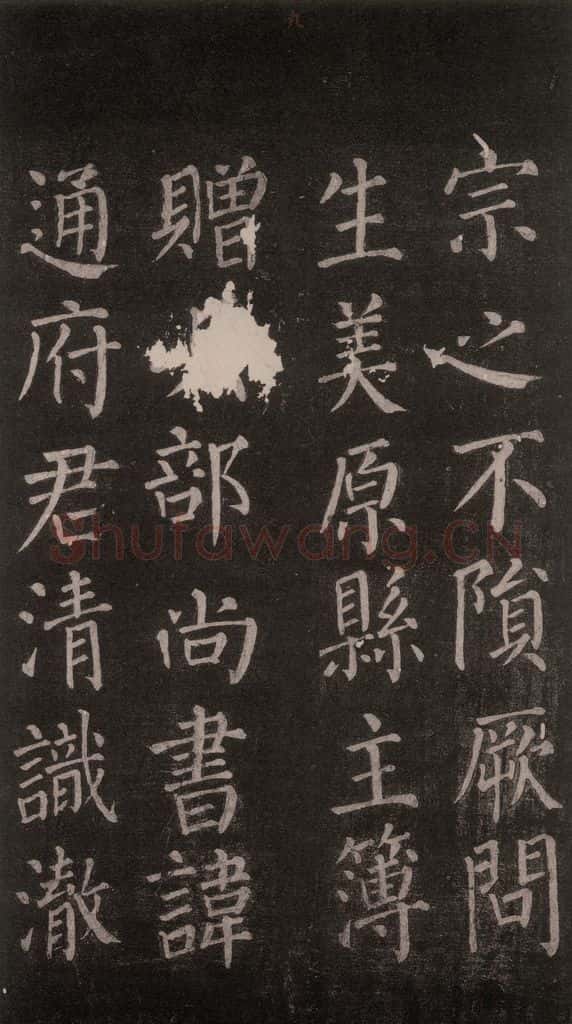 九
宗之不隕厥問
生美原縣主簿
贈部尚書諱
通府君清識澈
Shufawang.CN